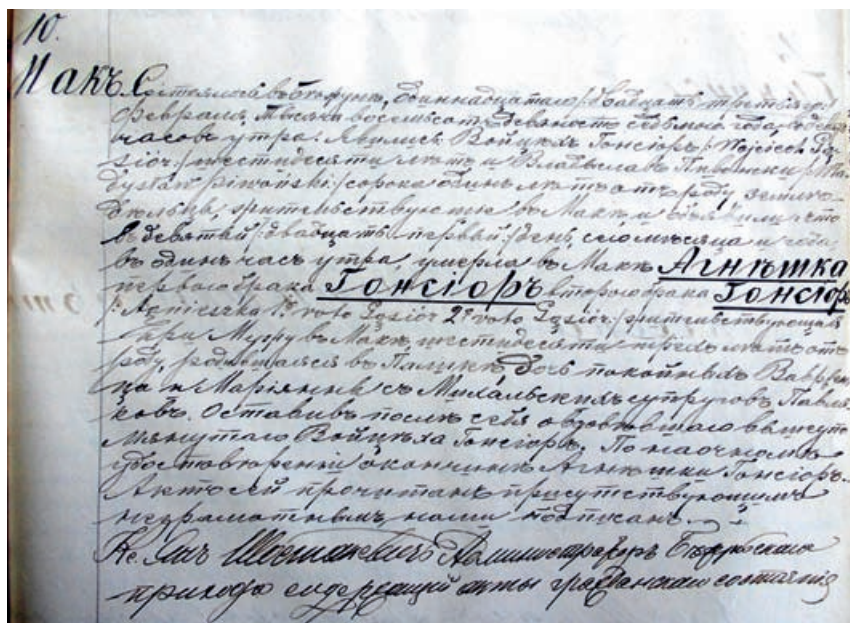 10.
Макъ. Состоялось въ одиннадцатаго /:двадцать третьяго:/
Февраля, тысяча восемьсотъ девяносто седьмого года, въ
часовъ утра. Явились: Войцѣхъ Гонсіоръ /:Wojciech Gą-
sior:/ шестидесяти лѣтъ и Владыславъ Пивонски /:Wła-
dysław Piwoński:/ сорока одинъ лѣтъ отъ роду, земле-
дѣльцы, жительствующіе въ Макѣ и объявили, что
въ девятый /:двадцать первый:/ день, сего мѣсяца и года,
въ одинъ часъ утра, умерла въ Макѣ Агнѣшка
первого брака Гонсіоръ второго брака Гонсіоръ
/:Agnieszka 1º voto Gąsior 2º voto Gąsior:/ жительствующая
при Мужу въ Макѣ, шестидесяти трехъ лѣтъ отъ
роду, родившаяся въ дочь покойныхъВаврен-
ца и Маріянны съ Михальскихъ супруговъ Павля-
ковъ. Оставивъ послѣ себя овдовѣвшаго вышеупо-
мянутаго Войцѣха Гонсіоръ. По наочномъ
удостовѣреніи о кончинѣ Агнѣшки Гонсіоръ.
Актъ сей прочитанъ присутствующимъ
неграмотнымъ, нами подписанъ.
Кс. Янъ Администраторъ
прихода содержащій акты гражданскаго состоянія